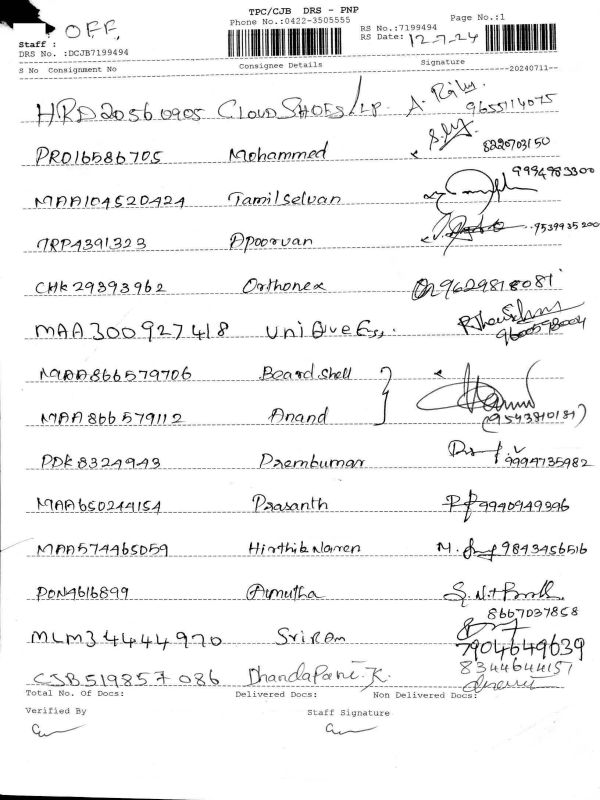 TPC/CJB DRS - PNP
Phone No.:0422-3505555
Page No.:1
OFF
RS No.:7199494
Staff :
RS Date: 12-7-24
DRS No. :DCJB7199494
S No Consignment No Consignee Details Signature --20240711--
HRD20560905 CLOUD SHOES/LP. A.
9655114075
PRO16586705 Mohammed 8220703150
MAA104520424 Tamilselvan 9994983300
TRP4391323 Apoorvan 9539935200
CHK29393962 Orthonex 9629818081
MAA300927418 UNIQUE Ess. 9600598004
MAA866579706 Beardshell
MAA866579112 Anand (9543810181)
PDK8324943 Premkumar 9994735982
MAA650244154 Prasanth 9940949396
MAA574465059 Hirthik Naren M. 9843456516
PON4616899 Amutha
8667037858
MLM34444970 Sriram 7904649639
8344644157
CJB519857086 Dhandapani.K.
Total No. Of Docs: Delivered Docs: Non Delivered Docs:
Verified By Staff Signature